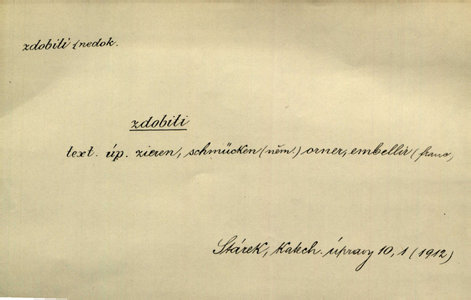 zdobiti /nedok.
zdobiti
text. úp. zieren, schmücken (něm.) orner, embellir (franc.)
Stárek, Katech. úpravy 10, 1 (1912)